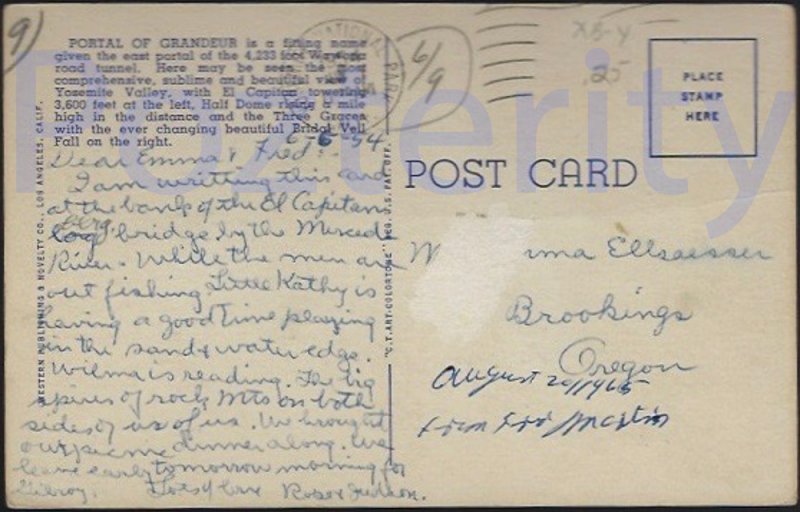 9)
PORTAL OF GRANDEUR is a fitting name
given the east portal of the 4,233 foot Wawona
road tunnel. Here may be seen the most
comprehensive, sublime and beautiful view of
Yosemite Valley, with El Capitan towering
3,600 feet at the left, Half Dome rising a mile
high in the distance and the Three Graces
with the ever changing beautiful Bridal Veil
Fall on the right.
6-6-54
Dear Emma & Fred:-
I am writting this card
at the bank of the El Capitan
log bridge by the Merced
River. While the men are
out fishing Little Kathy is
having a good time playing
in the sand & water edge.
Wilma is reading. The big
spires of rock Mts on both
sides of us of us. We brought
our picnic dinner along. We
leave early tomorrow morning for
Gilroy. Loes of love
WESTERN PUBLISHING & NOVELTY CO., LOS ANGELES, CALIF.
"C.T. ART-COLORTONE" REG. U.S. PAT. OFF.
NATIONAL PARK
6/9
XB-4
.25
PLACE
STAMP
HERE
POST CARD
Ellsaesser
Brookings
Oregon
August 20/1965
from
Foxterity